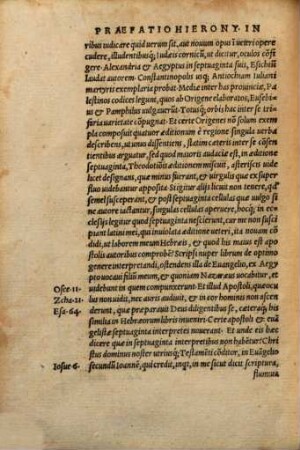 PRÆFATIO HIERONY. IN
ribus iudicare quod uerum sit, aut nouum opus ī ueteri opere
cudere, illudentibusq; Iudæis cornicū, ut dicitur, oculos cōfi
gere. Alexandria & Aegyptus in septuaginta suis, Esichiū
laudat autorem. Constantinopolis usq; Antiochiam Luciani
martyris exemplaria probat. Mediæ inter has prouinciæ, Pa
lestinos codices legunt, quos ab Origene elaboratos, Euse-
bius & Pamphilus uulgauerūt. Totusq; orbis hac inter se tri-
faria uarietate cōpugnat. Et certe Origenes nō solum exem
pla composuit quatuor æditionum è regione singula uerba
describens, ut unus dissentiens, statim cæteris inter se cōsen
tientibus arguatur, sed quod maioris audaciæ est, in æditione
septuaginta, Theodotiōnis æditionem miscuit, asteriscis uide
licet designans, quæ minus fuerant, & uirgulis quæ ex super
fluo uidebantur apposita. Si igitur alijs licuit non tenere, qđ
semel susceperant, & post septuaginta cellulas quas uulgo si-
ne autore iactantur, singulas cellulas aperuere, hocq; in eccle
sijs legitur quod septuaginta nescierunt, cur me non susci
piant latini mei, qui inuiolata æditione ueteri, ita nouam cō
didi, ut laborem meum Hebræis, & quod his maius est apo
stolis autoribus comprobē? Scripsi nuper librum de optimo
genere interpretandi, ostendens illa de Euangelio, ex Aegy
pto uocaui filiū meum, & quoniam Nazaræus uocabitur, et
Osee.11. uidebunt in quem compunxerunt. Et illud Apostoli, quæ ocu
Zcha.12. lus non uidit, nec auris audiuit, & in cor hominis non ascen
Esa.64. derunt, quæ præparauit Deus diligentibus se, cæteraq; his
similia in Hebræorum libris inueniri. Certe apostoli & euā
gelistæ septuaginta interpretes nouerant. Et unde eis hæc
dicere quæ in septuaginta interpretibus non habētur? Chri
stus dominus noster utriusq; Testamēti cōditor, in Euāgelio
Iosue.6. secundū Ioannē, qui credit, inqt, in me sicut dicit scriptura,
flumina